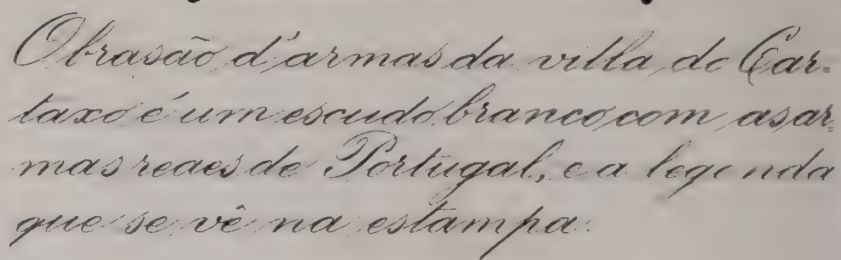 O brasão d'armas da villa do Car-
taxo é um escudo branco com as ar-
mas reaes de Portugal, e a legenda
que se vê na estampa.